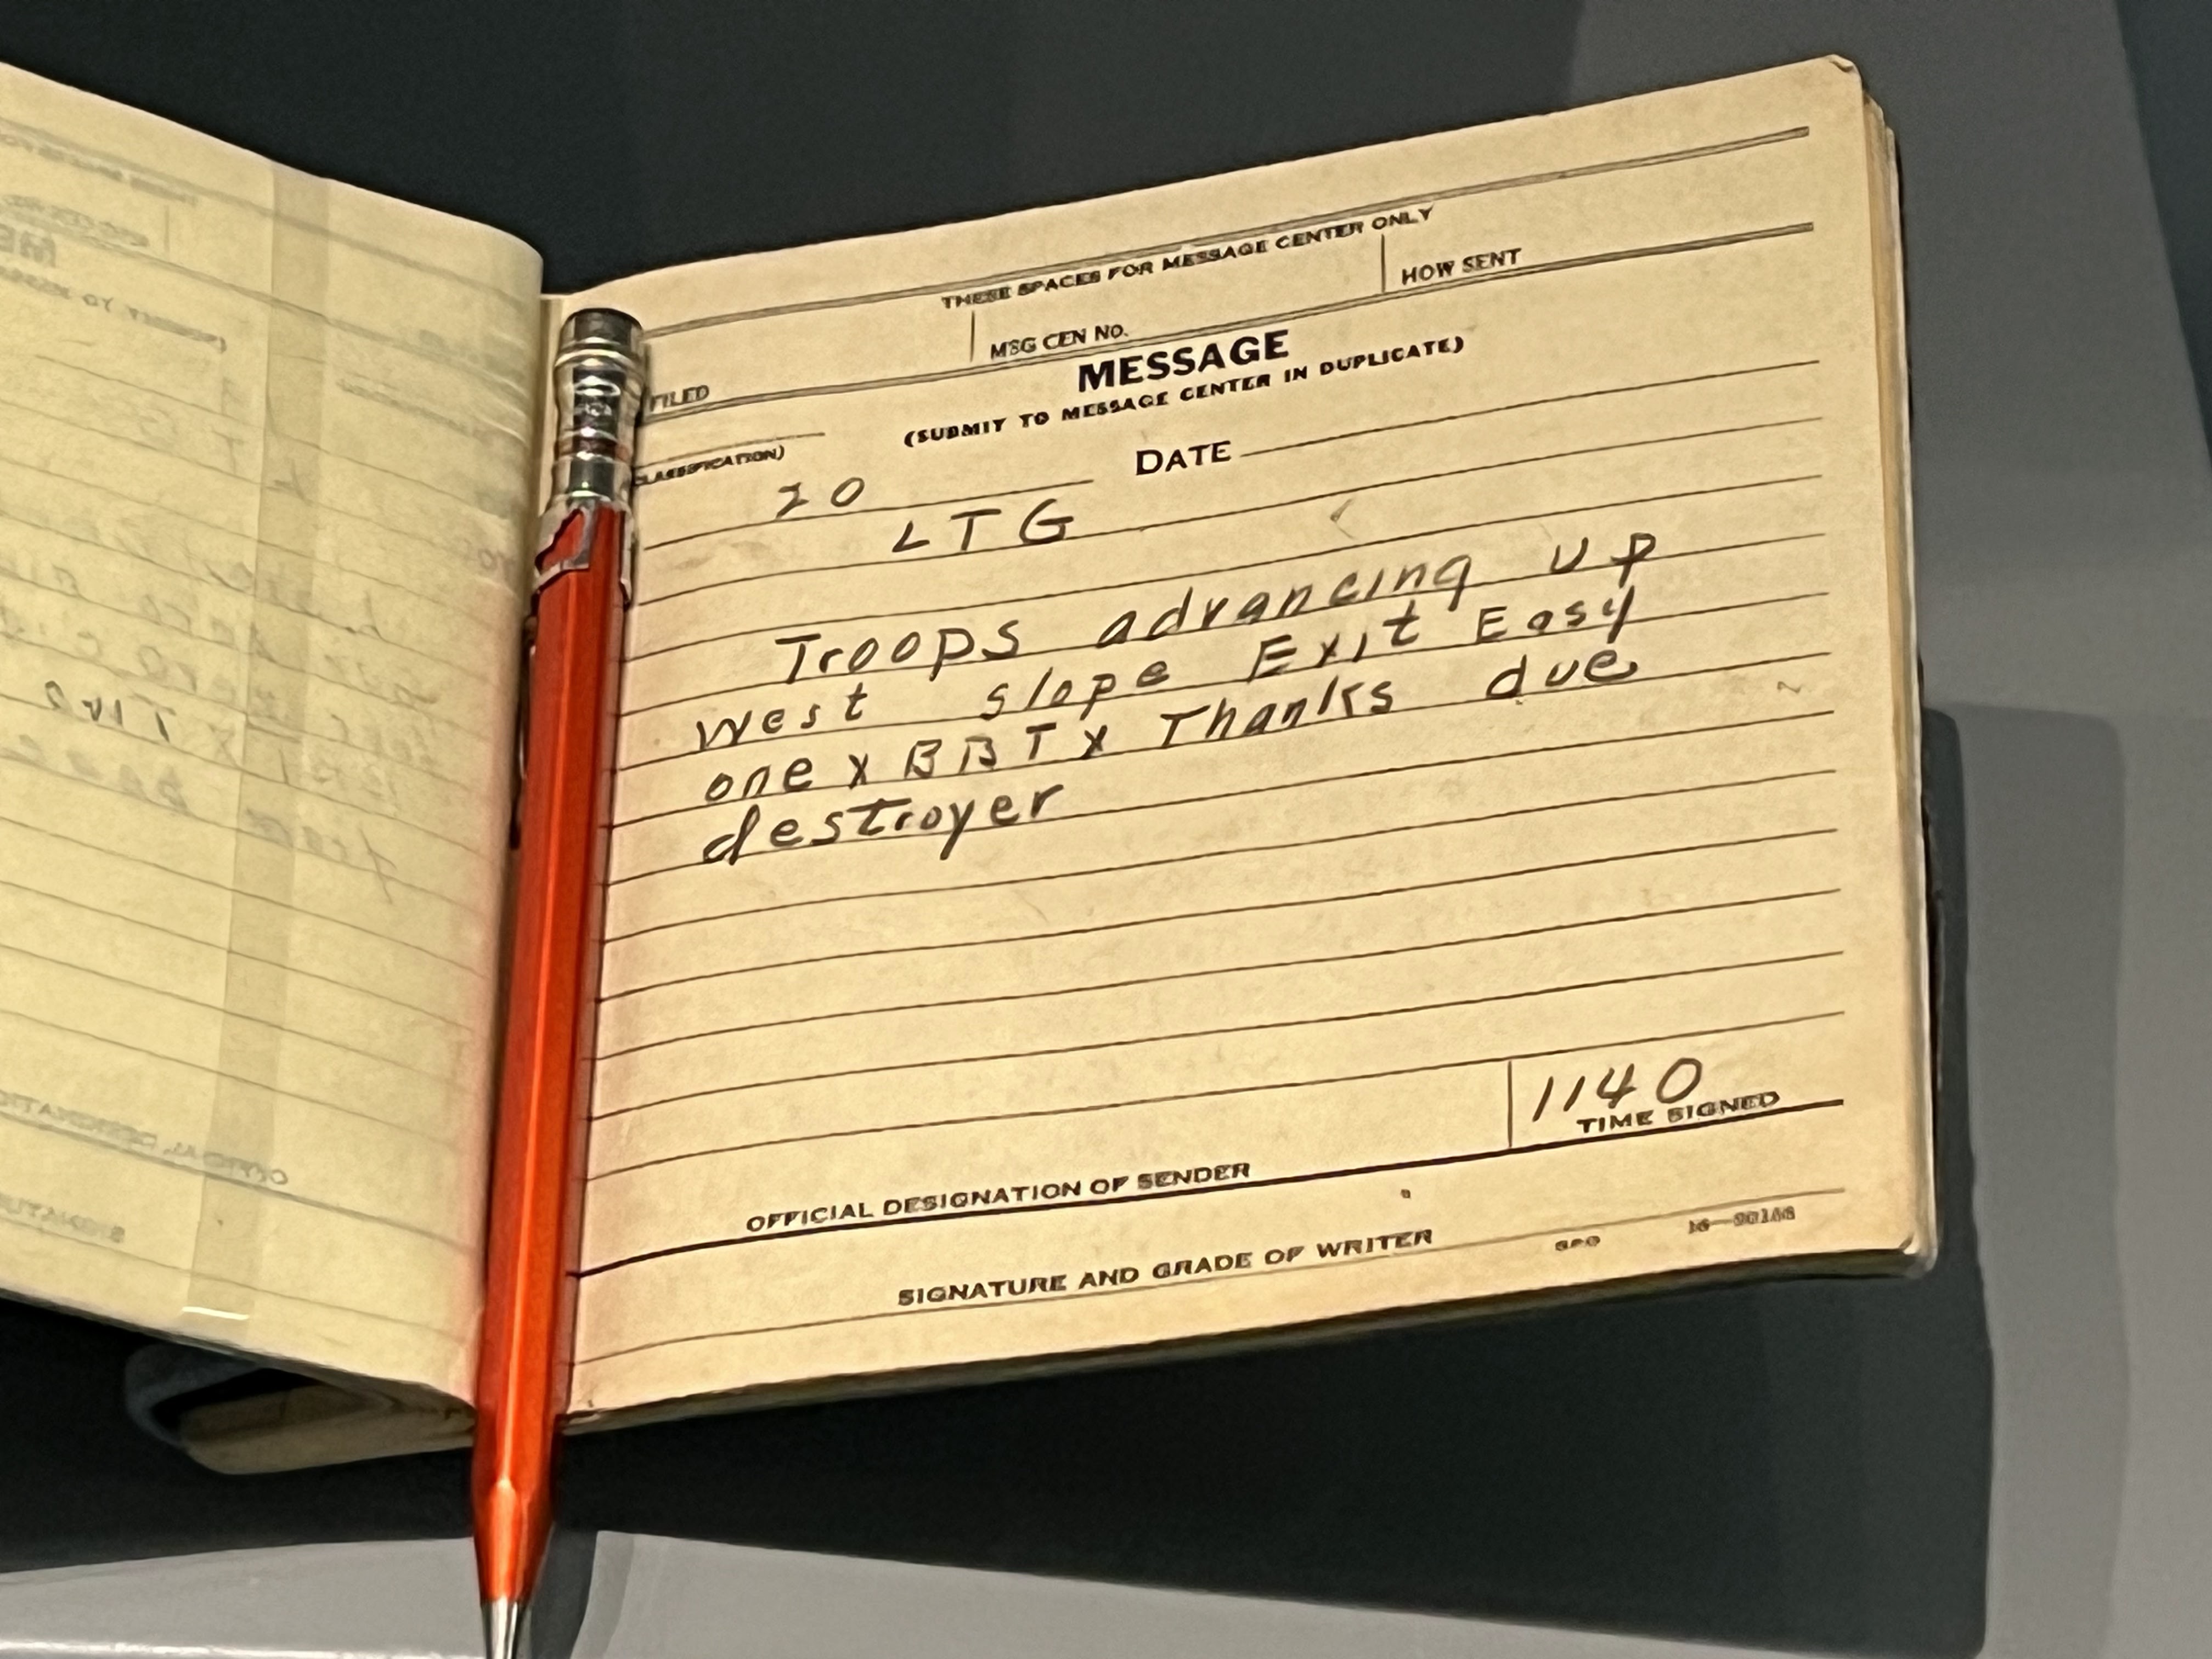 THESE SPACES FOR MESSAGE CENTER ONLY
FILED MSG CEN No. HOW SENT
MESSAGE
(SUBMIT TO MESSAGE CENTER IN DUPLICATE)
CLASSIFICATION) DATE
20
LTG
Troops advancing up
west slope Exit Easy
one x BBT x Thanks due
destroyer
1140
TIME SIGNED
OFFICIAL DESIGNATION OF SENDER
SIGNATURE AND GRADE OF WRITER
GPO